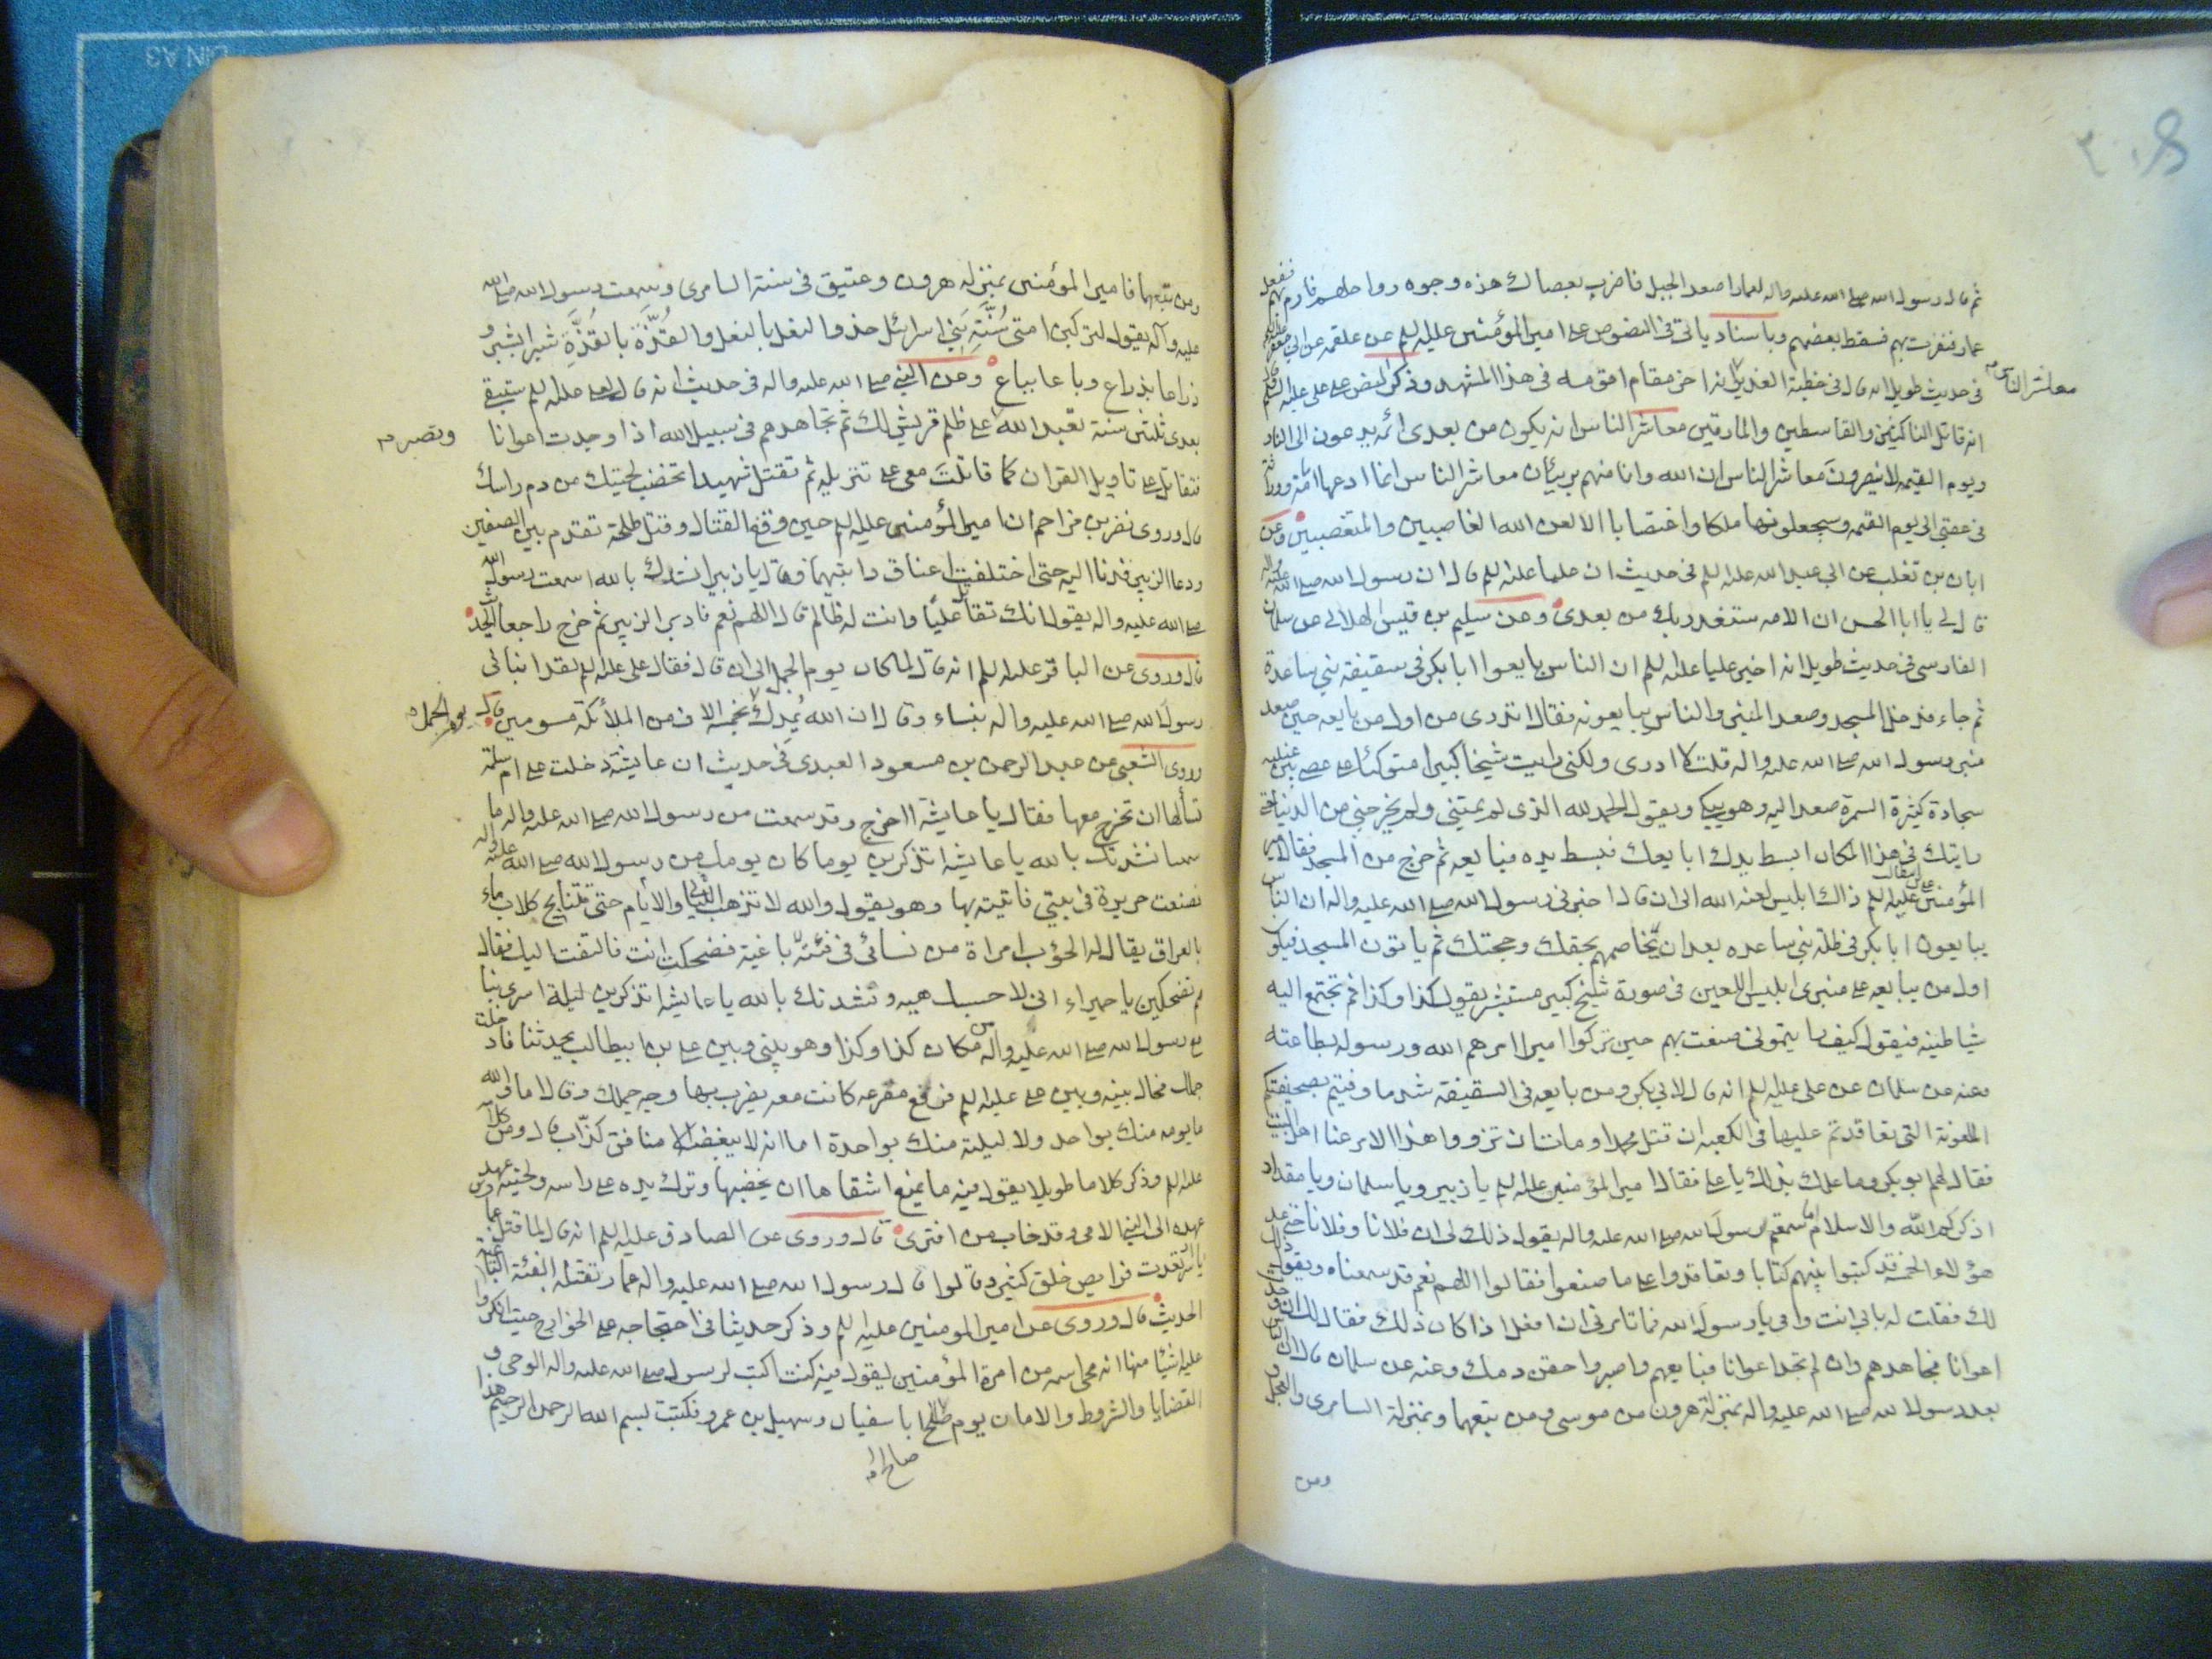 ثم قال رسول الله صلى الله عليه واله لعمار اصعد الجبل فاضرب بعصاك هذه وجوه رواحلهم فارم بهم ففعل
عمار فنفرت بهم فسقط بعضهم وباسناد ياتى فى النصوص على امير المؤمنين عليه السلم عن علقمه عن ابى جعفر
فى حديث طويل انه قال فى خطبة الغدير انه اخر مقام اقومه فى هذا المشهد وذكر النص على على عليه السلم
معاشر الناس
انه قاتل الناكثين والقاسطين والمارقين معاشر الناس انه يكون من بعدى ائمه يدعون الى النار
ويوم القيمه لا ينصرون معاشر الناس ان الله وانا منهم بريئان معاشر الناس انما ادعها امامة وورثة
فى عقبى الى يوم القيمه وسيجعلونها ملكا واغتصابا الا لعن الله الغاصبين والمتغصبين وعن
ابان بن تغلب عن ابى عبد الله عليه السلم فى حديث ان عليا عليه السلم قال ان رسول الله صلى الله عليه واله
قال لى يا ابا الحسن ان الامه ستغدر بك من بعدى وعن سليم بن قيس الهلالى عن سلمان
الفارسى فى حديث طويل انه اخبر عليا عليه السلم ان الناس بايعوا ابا بكر فى سقيفة بنى ساعدة
ثم جاء فدخل المسجد وصعد المنبر والناس يبايعونه فقال اتدرى من اول من بايعه حين صعد
منبر رسول الله صلى الله عليه واله قلت لا ادرى ولكنى رايت شيخا كبيرا متوكئا على عصى بين عينيه
سجادة كثيرة السمرة صعد اليه وهو يبكى ويقول الحمد لله الذى لم يمتنى ولم يخرجنى من الدنيا حتى
رايتك فى هذا المكان ابسط يدك ابايعك فبسط يده فبايعه ثم خرج من المسجد فقال امير
المؤمنين عليه السلم ذاك ابليس لعنه الله الى ان قال اخبرنى رسول الله صلى الله عليه واله ان الناس
يبايعون ابا بكر فى ظلة بنى ساعده بعد ان تخاصمهم بحقك وحجتك ثم ياتون المسجد فيكون
اول من يبايعه على منبرى ابليس اللعين فى صورة شيخ كبير مستبشر يقول كذا وكذا ثم تجتمع اليه
شياطينه فيقول كيف رايتمونى صنعت بهم حين تركوا امير امرهم الله ورسوله بطاعته
وعنه عن سلمان عن على عليه السلم انه قال لابى بكر ومن بايعه فى السقيفة شد ما وفيتم بصحيفتكم
الملعونة التى تعاقدتم عليها فى الكعبه ان قتل محمد او مات ان تزووا هذا الامر عنا اهل البيت
فقال لهم ابو بكر وما علمك بذلك يا على فقال امير المؤمنين عليه السلم يا زبير ويا سلمان ويا مقداد
اذكركم الله والاسلام اما سمعتم رسول الله صلى الله عليه واله يقول ذلك لى ان فلانا وفلانا حتى عد
هؤلاء الخمسه قد كتبوا بينهم كتابا وتعاقدوا على ما صنعوا فقالوا اللهم نعم قد سمعناه ويقول
لك فقلت له بابى انت وامى يا رسول الله فما تامرنى ان افعل اذا كان ذلك فقال لك ان وجدت
اعوانا فجاهدهم وان لم تجد اعوانا فبايعهم واصبر واحقن دمك وعنه عن سلمان قال ان الناس
بعد رسول الله صلى الله عليه واله بمنزلة هرون من موسى ومن تبعهما وبمنزلة السامرى والعجل و
ومن
ومن تبعهما فامير المؤمنين بمنزلة هرون وعتيق فى سنة السامرى وسمعت رسول الله صلى الله
عليه وآله يقول لتركبن امتى سُنَّةَ بَنِي اسرائل حذو النعل بالنعل والقُذَّة بالقُذَّةِ شبرا بشبر و
ذراعا بذراع وباعا بباع وعن النبى صلى الله عليه واله فى حديث انه قال لعلى عليه السلم ستبقى
بعدى ثلثين سنة تعبد الله على ظلم قريش لك ثم تجاهدهم فى سبيل الله اذا وجدت اعوانا
وتصبر
فتقاتل على تاويل القران كما قاتلتَ معى على تنزيله ثم تقتل شهيدا تخضب لحيتك من دم راسك
قال وروى نصر بن مزاحم ان امير المؤمنين عليه السلم حين وقع القتال وقتل طلحة تقدم بين الصفين
ودعا الزبير فدنا اليه حتى اختلفت اعناق دابتيهما فقال يا زبير انشدك بالله اسمعت رسول الله
صلى الله عليه واله يقول انك تقاتل عليّا وانت له ظالم قال اللهم نعم فادبر الزبير ثم خرج راجعا الحديث
قال وروى عن الباقر عليه السلم انه قال لما كان يوم الجمل الى ان قال فقال على عليه السلم لقد انبانى
رسول الله صلى الله عليه واله بنباء وقال ان الله يُمِدك بخمسة الاف من الملائكة مسومين قال
يوم الجمل
وروى الشعبى عن عبد الرحمن بن مسعود العبدى فى حديث ان عايشة دخلت على ام سلمة
تسألها ان تخرج معها فقال يا عايشة اخرج وقد سمعت من رسول الله صلى الله عليه واله ما
سمعنا نشدتك بالله يا عايشه اتذكرين يوما كان يومك من رسول الله صلى الله عليه واله
فصنعت حريرة فى بيتى فاتيته بها وهو يقول والله لا تذهب الليالى والايام حتى تتنابح كلاب ماء
بالعراق يقال له الحوءب امراة من نسائى فى فئة باغية فضحكت انت فالتفت اليك فقال
مم تضحكين يا حميراء انى لاحسبك هيه ونشدتك بالله يا عايشه اتذكرين ليلة اسرى بنا
مع رسول الله صلى الله عليه واله من مكان كذا وكذا وهو بينى وبين على بن ابيطالب يحدثنا فادخلت
جملك فحال بينه وبين على عليه السلم فرفع مقرعه كانت معه يضرب بها وجه جملك وقال اما والله
ما يومه منك بواحد ولا ليلته منك بواحدة اما انه لا يبغضه الا منافق كذاب قال ومن كلامه
عليه السلم وذكر كلاما طويلا يقول فيه ما يمنع اشقاها ان يخضبها وترك يده على راسه ولحيته عهد
عهده الى النبى الامى وقد خاب من افترى قال وروى عن الصادق عليه السلم انه قال لما قتل عمار
بن ياسر ارتعدت فرايص خلق كثير وقالوا قال رسول الله صلى الله عليه واله عمار تقتله الفئة الباغية
الحديث قال وروى عن امير المومنين عليه السلم وذكر حديثا فى احتجاجه على الخوارج حيث انكروا
عليه اشيا منها انه محى اسمه من امرة المؤمنين يقول فيه كنت اكتب لرسول الله صلى الله عليه واله الوحى و
القضايا والشروط والامان يوم صالح ابا سفيان وسهيل بن عمرو فكتبت بسم الله الرحمن الرحيم هذا